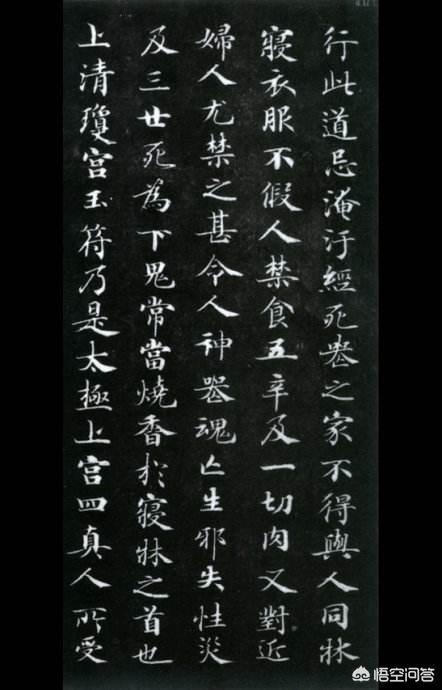 行此道忌淹汙經死喪之家不得與人同牀
寢衣服不假人禁食五辛及一切肉又對近
婦人尤禁之甚令人神喪魂亡生邪失性災
及三世死為下鬼常當燒香於寢牀之首也
上清瓊宮玉符乃是太極上宮四真人所受
悟空问答